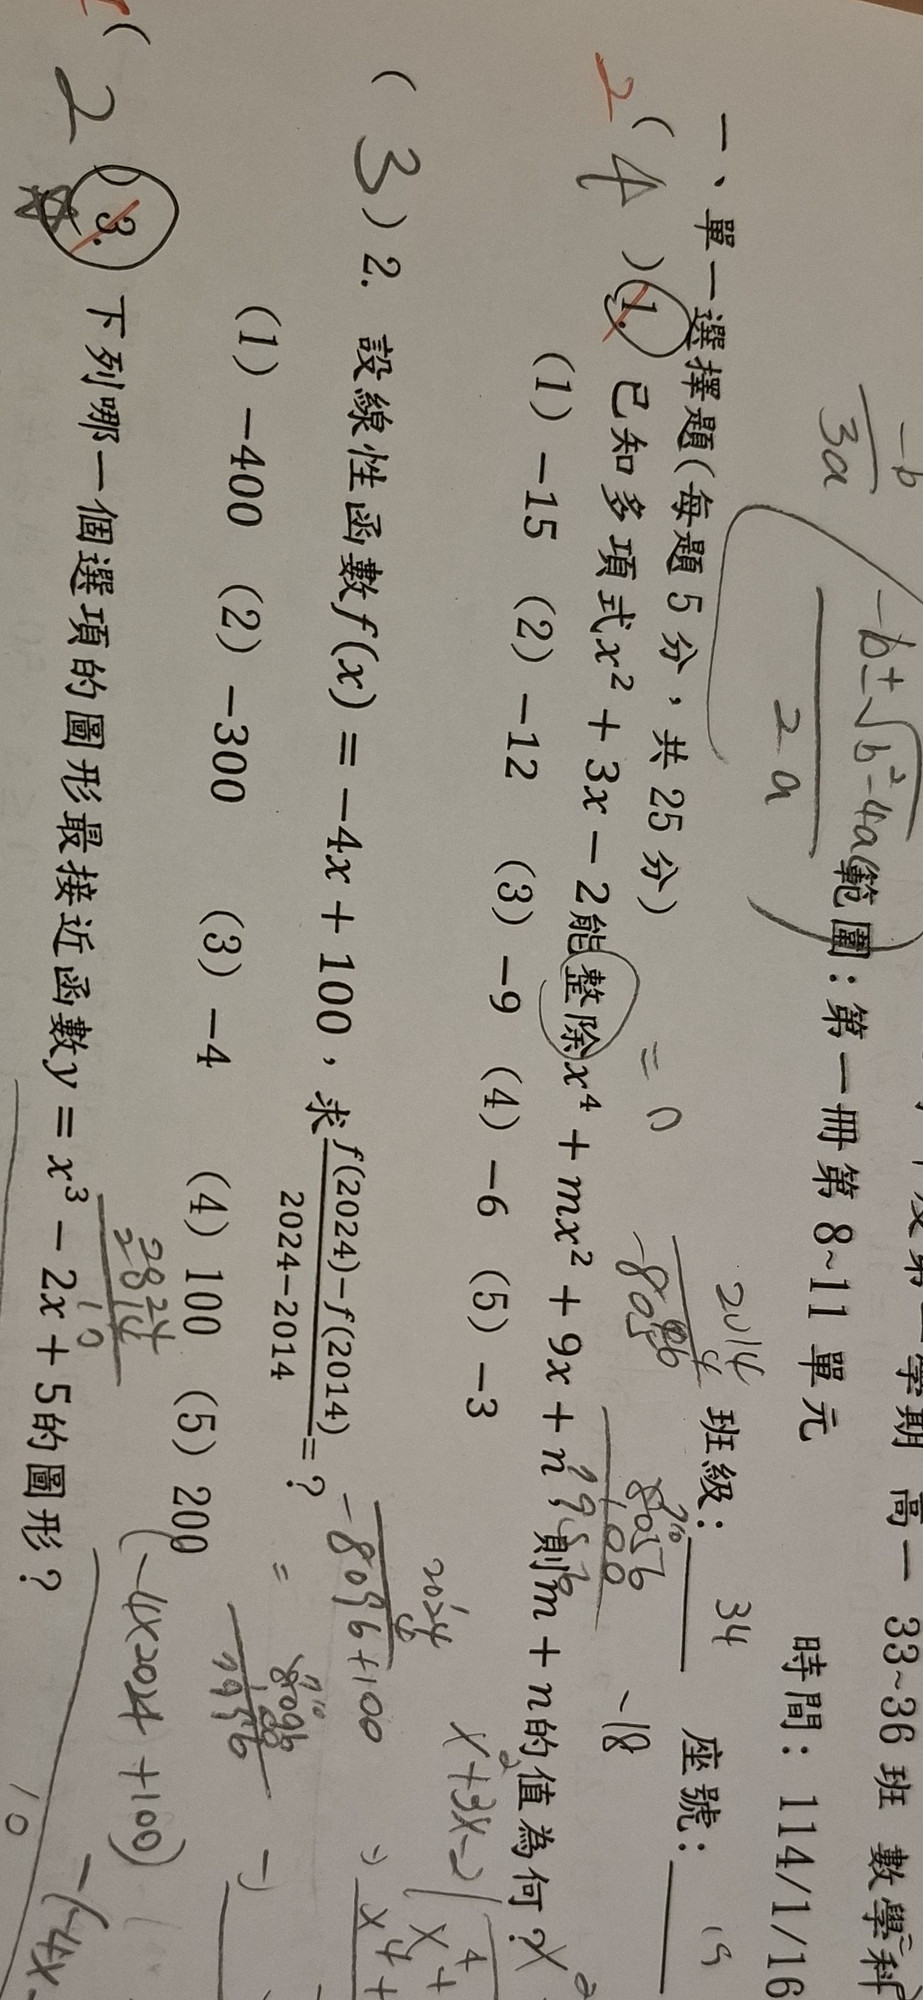 學期 高一 33~36班 數學科
範圍：第一冊第8~11單元 時間：114/1/16
班級： 34 座號：
一、單一選擇題(每題5分，共25分)
2
( 4 ) 1. 已知多項式x² + 3x − 2能整除x⁴ + mx² + 9x + n，則m + n的值為何？
(1) −15 (2) −12 (3) −9 (4) −6 (5) −3
( 3 ) 2. 設線性函數f(x) = −4x + 100，求 f(2024)−f(2014) / 2024−2014 = ?
(1) −400 (2) −300 (3) −4 (4) 100 (5) 200
( 2 ) 3. 下列哪一個選項的圖形最接近函數y = x³ − 2x + 5的圖形？
−b
3a
−b±√b²−4ac
2a
= 0
2014
−18
2024
−8096+100
x²+3x−2
(−4x2024 +100)
−(−4x
10